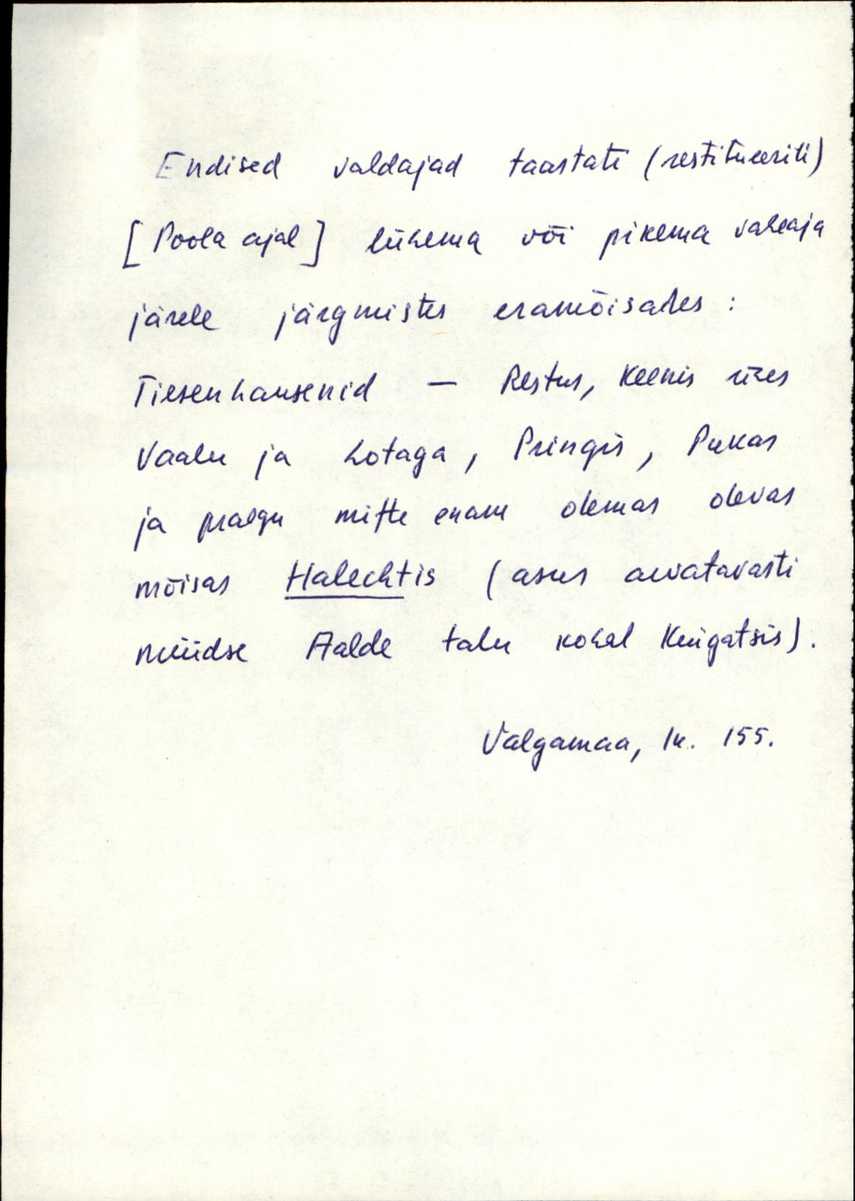 Endised valdajad taastati (restitueeriti)
[Poola ajal] lühema või pikema vaheaja
järele järgmistes eramõisates:
Tiesenhausenid — Restus, Keenis ühes
Vaalu ja Lotaga, Pringis, Pukas
ja praegu mitte enam olemas olevas
mõisas Halechtis (asus arvatavasti
nüüdse Aalde talu kohal Kuigatsis).
Valgamaa, lk. 155.